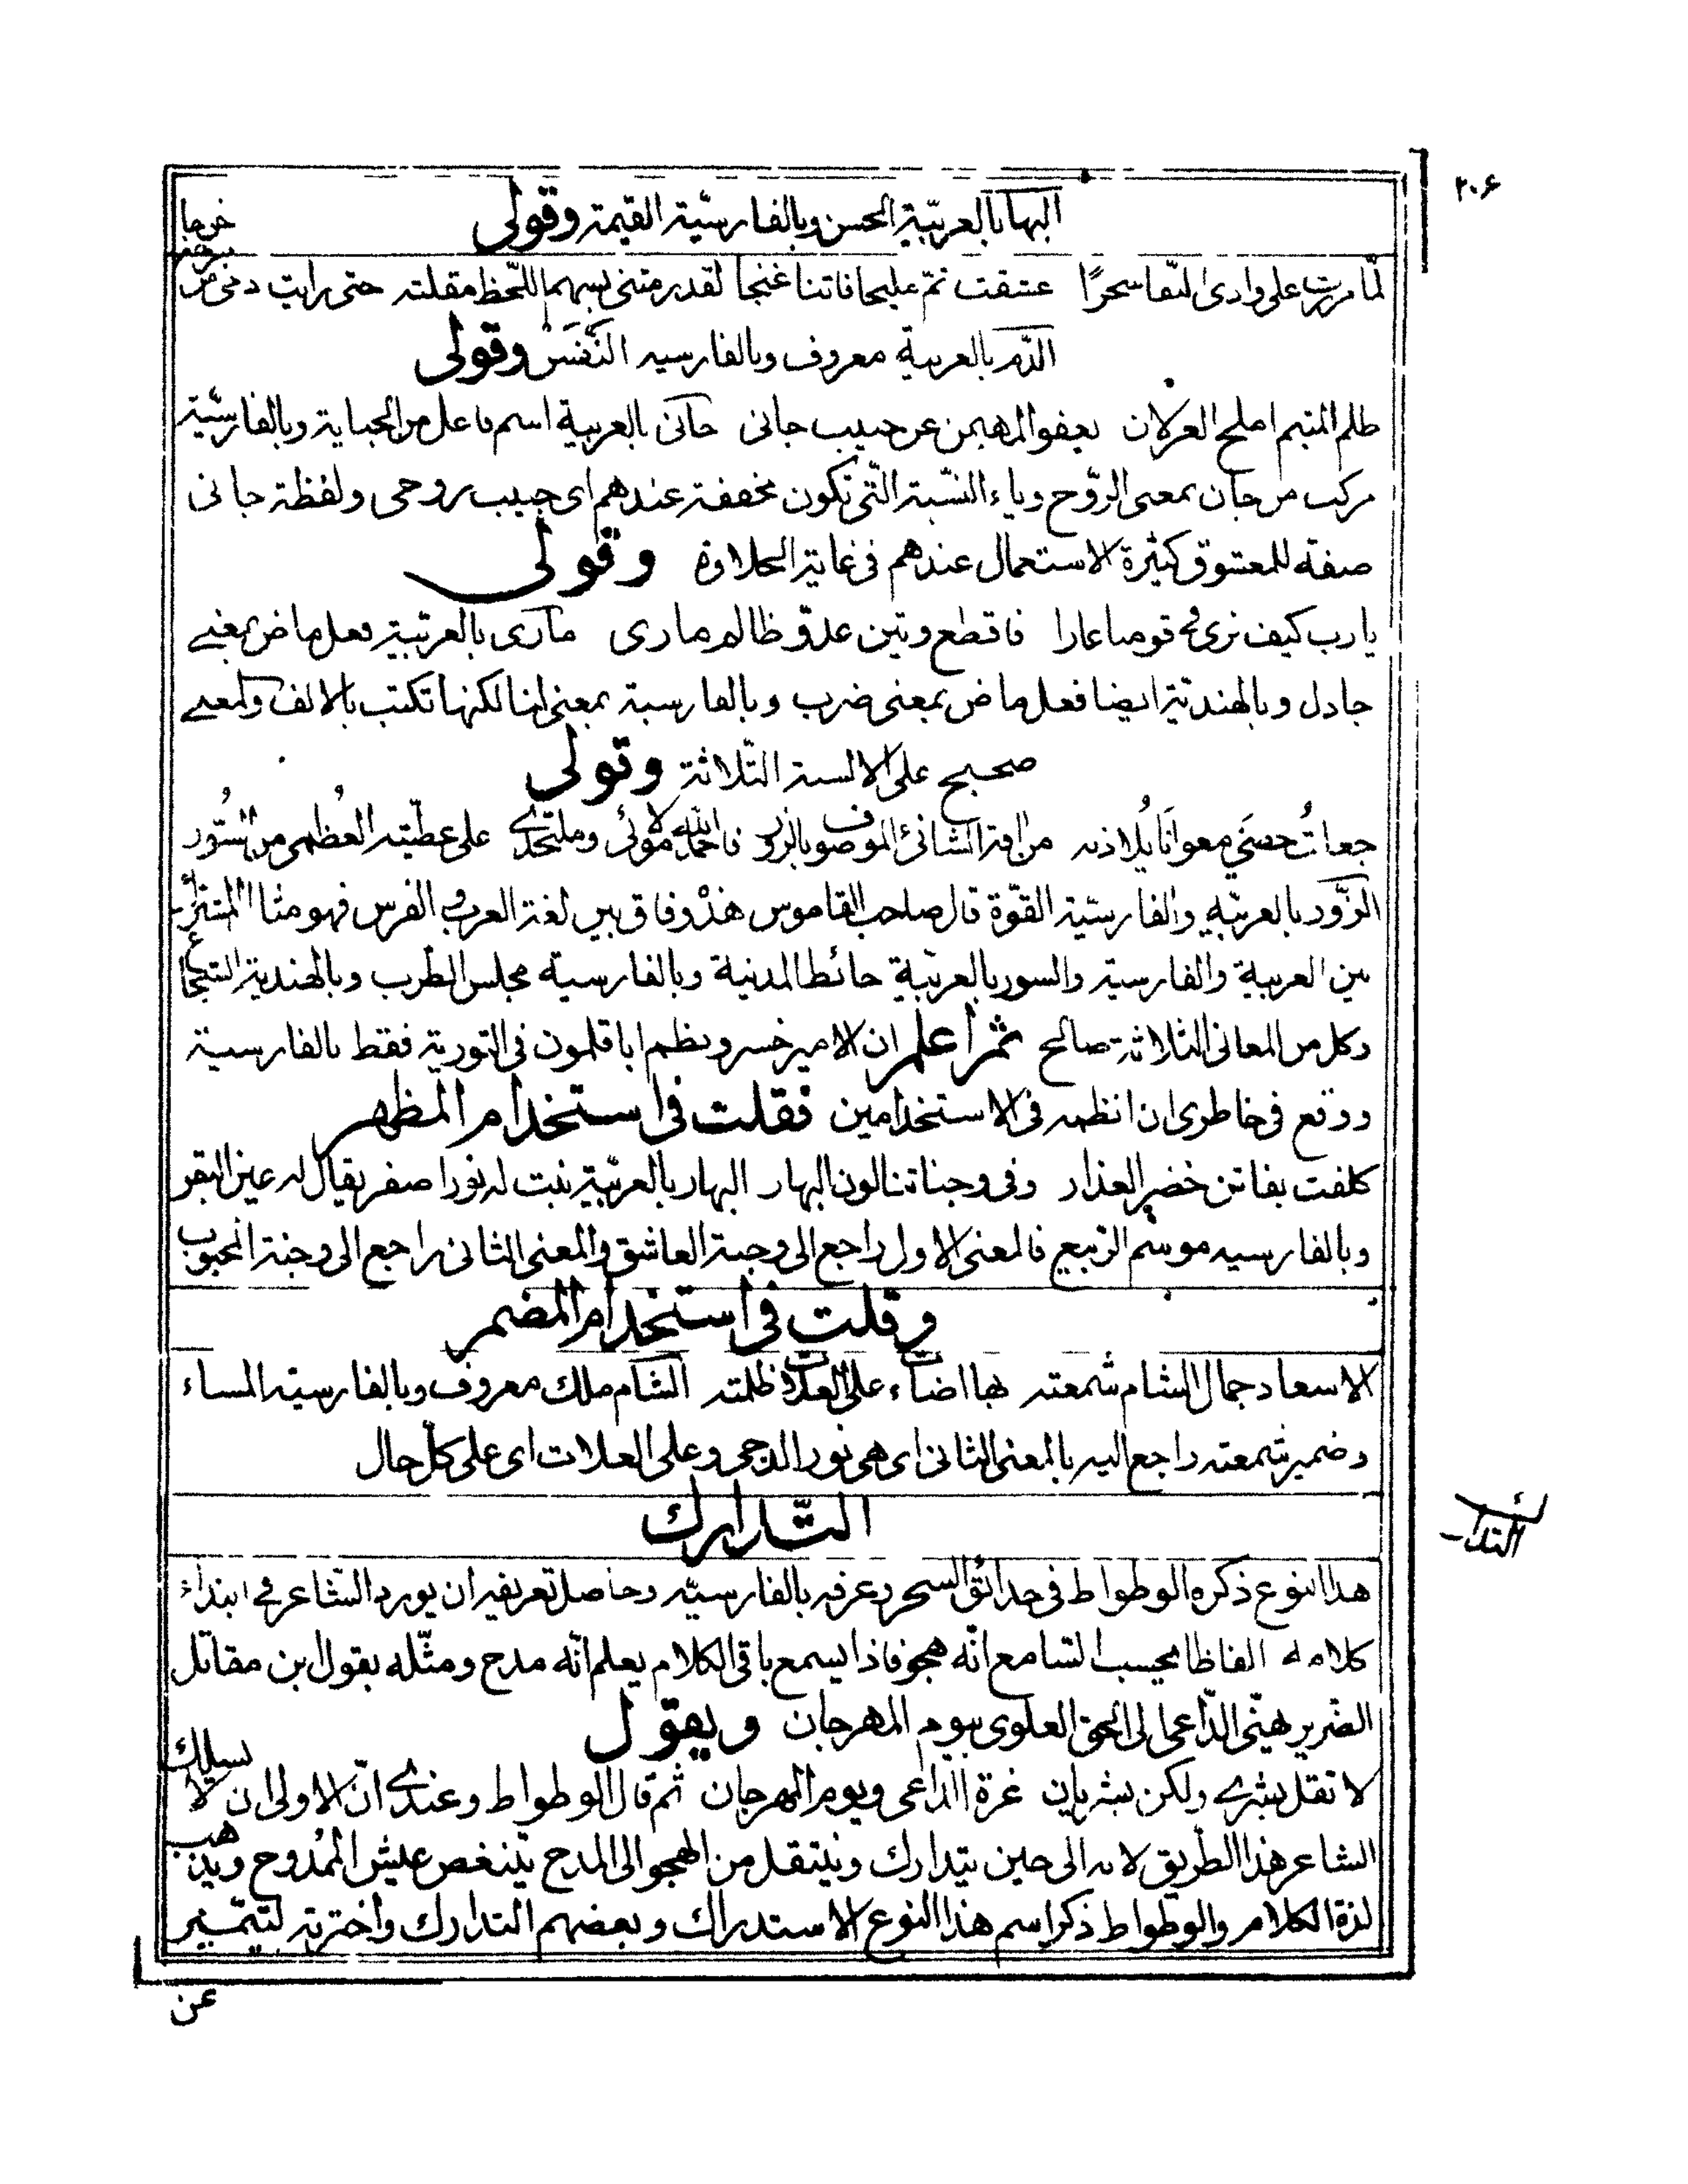 ٢٠۶
البها بالعربيّة الحسن وبالفارسيّة القيمة وقولى
لمّا مررت على وادى النّقا سحرًا عشقت ثمّ مليحا فاتنا غنجا لقد رمتنى بسهم اللّحظ مقلته حتى رايت دمى من خرجا
الدّم بالعربية معروف وبالفارسيه النَّفَسْ وقولى
ظلم المتيم املح الغزلان يعفو المهيمن عن حبيب جانى جانى بالعربية اسم فاعل من الجناية وبالفارسيّة
مركب من جان بمعنى الرّوح وياء النسّبة الّتى تكون مخففة عندهم اى حبيب روحى ولفظة جانى
صفة للمعشوق كثيرة الاستعمال عندهم فى غاية الحلاوة وقولى
يا رب كيف نرى فى قومنا عارا فاقطع وتين عدوّ ظالم مارى مارى بالعربيّة فعل ماض بمعنے
جادل وبالهنديّة ايضا فعل ماض بمعنى ضرب وبالفارسية بمعنى لنا لكنها تكتب بالالف والمعنے
صحيح على الالسنة الثّلاثة وقولى
جعلتُ حصنى معوانًا يُلاذ به من افة الشانئ الموصوف بالزّور فاحمد الله مولائى وملتحدے على عطيّته العُظمى من السُّور
الزّور بالعربيّه والفارسيّة القوّة قال صاحب القاموس هذْ وفاق بين لغة العرب والفرس فهو مثال المشترك
بين العربية والفارسية والسور بالعربيّة حائط المدنية وبالفارسية مجلس الطرب وبالهندية الشجاع
وكل من المعانى الثلاثة صالح ثمّ اعلم ان الامير خسرو نظم اباقلمون فى التورية فقط بالفارسية
ووقع فى خاطرى ان انظمه فى الاستخدامين فقلت فى استخدام المظهر
كلفت بفاتن خضر العذار وفى وجناتنا لون البهار البهار بالعربيّة نبت له نور اصفر يقال له عين البقر
وبالفارسيه موسم الرّبيع فالمعنى الاول راجع الى وجنة العاشق والمعنى الثانى راجع الى وجنة المحبوب
وقلت فى استخدام المضمر
الا سعاد جمال الشام شمعته لها اضاءت على العلات ظلمته الشام ملك معروف وبالفارسية المساء
وضمير شمعته راجع اليه بالمعنى الثانى اى هى نور الدجى وعلى العلات اى على كلّ حال
التّدارك
التدارك
هذا النوع ذكره الوطواط فى حدائق السحر وعرفه بالفارسيّه وحاصل تعريفه ان يورد الشاعر فى ابتداء
كلامه الفاظا يحسب السّامع انّه هجو فاذا يسمع باقى الكلام يعلم انّه مدح ومثّله بقول ابن مقاتل
الضّرير يهنّى الدّاعى الى الحق العلوى بيوم المهرجان ويقول
لا تقل بشرے ولكن بشريان غرة الداعى ويوم المهرجان ثم قال الوطواط وعندے انّ الاولى ان لا يسلك
الشاعر هذا الطريق لانه الى حين يتدارك وينتقل من الهجو الى المدح يتنغص عيش الممدوح ويذهب
لذة الكلام والوطواط ذكر اسم هذا النوع الاستدراك وبعضهم التدارك واخترته ليتميز
عن